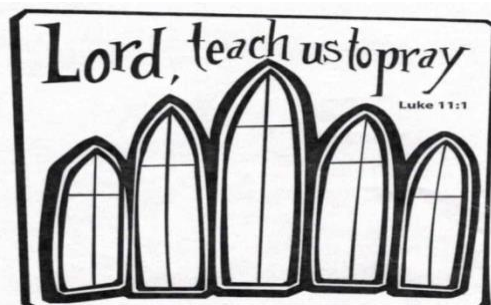 Lord, teach us to pray
Luke 11:1